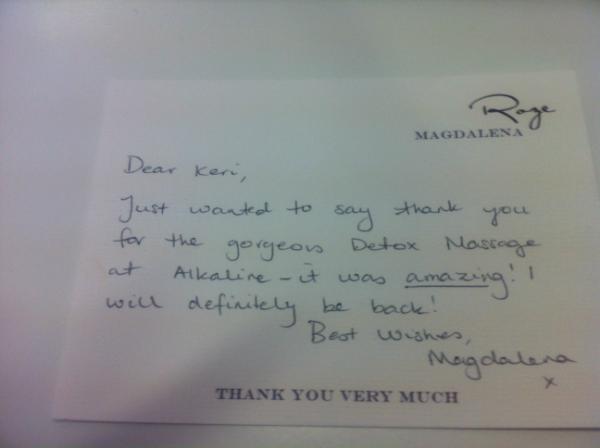 Roze
MAGDALENA
Dear Keri,
Just wanted to say thank you
for the gorgeous Detox Massage
at Alkaline - it was amazing! I
will definitely be back!
Best Wishes,
Magdalena
x
THANK YOU VERY MUCH